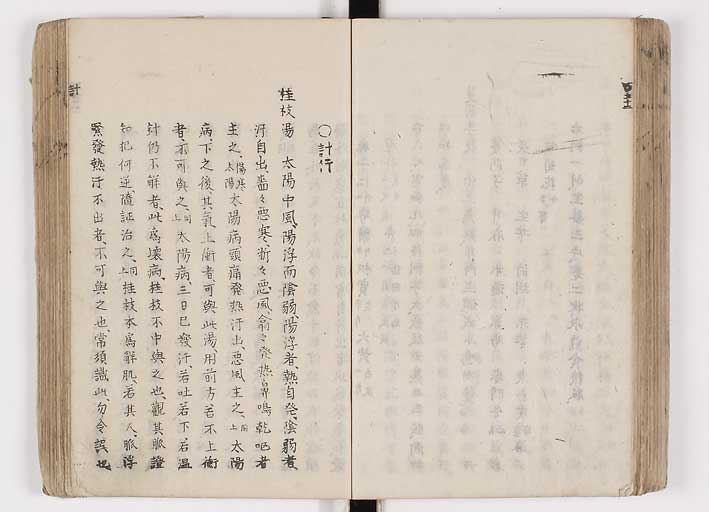 〇計行
桂枝湯 太陽中風、陽浮而陰弱、陽浮者、熱自発、陰弱者、
汗自出、嗇々悪寒、淅々悪風、翕々発熱、鼻鳴乾呕者
主之、陽寒太陽 太陽病、頭痛発熱汗出、悪風主之、同上 太陽
病、下之後、其氣上衝者、可與此湯、用前方、若不上衝
者、不可與之、同上 太陽病、三日已發汗、若吐若下若温
針仍不解者、此為壊病、桂枝不中與之也、觀其脈證
知犯何逆、隨証治之、同上 桂枝本為解肌、若其人脈浮
緊發熱汗不出者、不可與之也、常須識此、勿令誤也
計